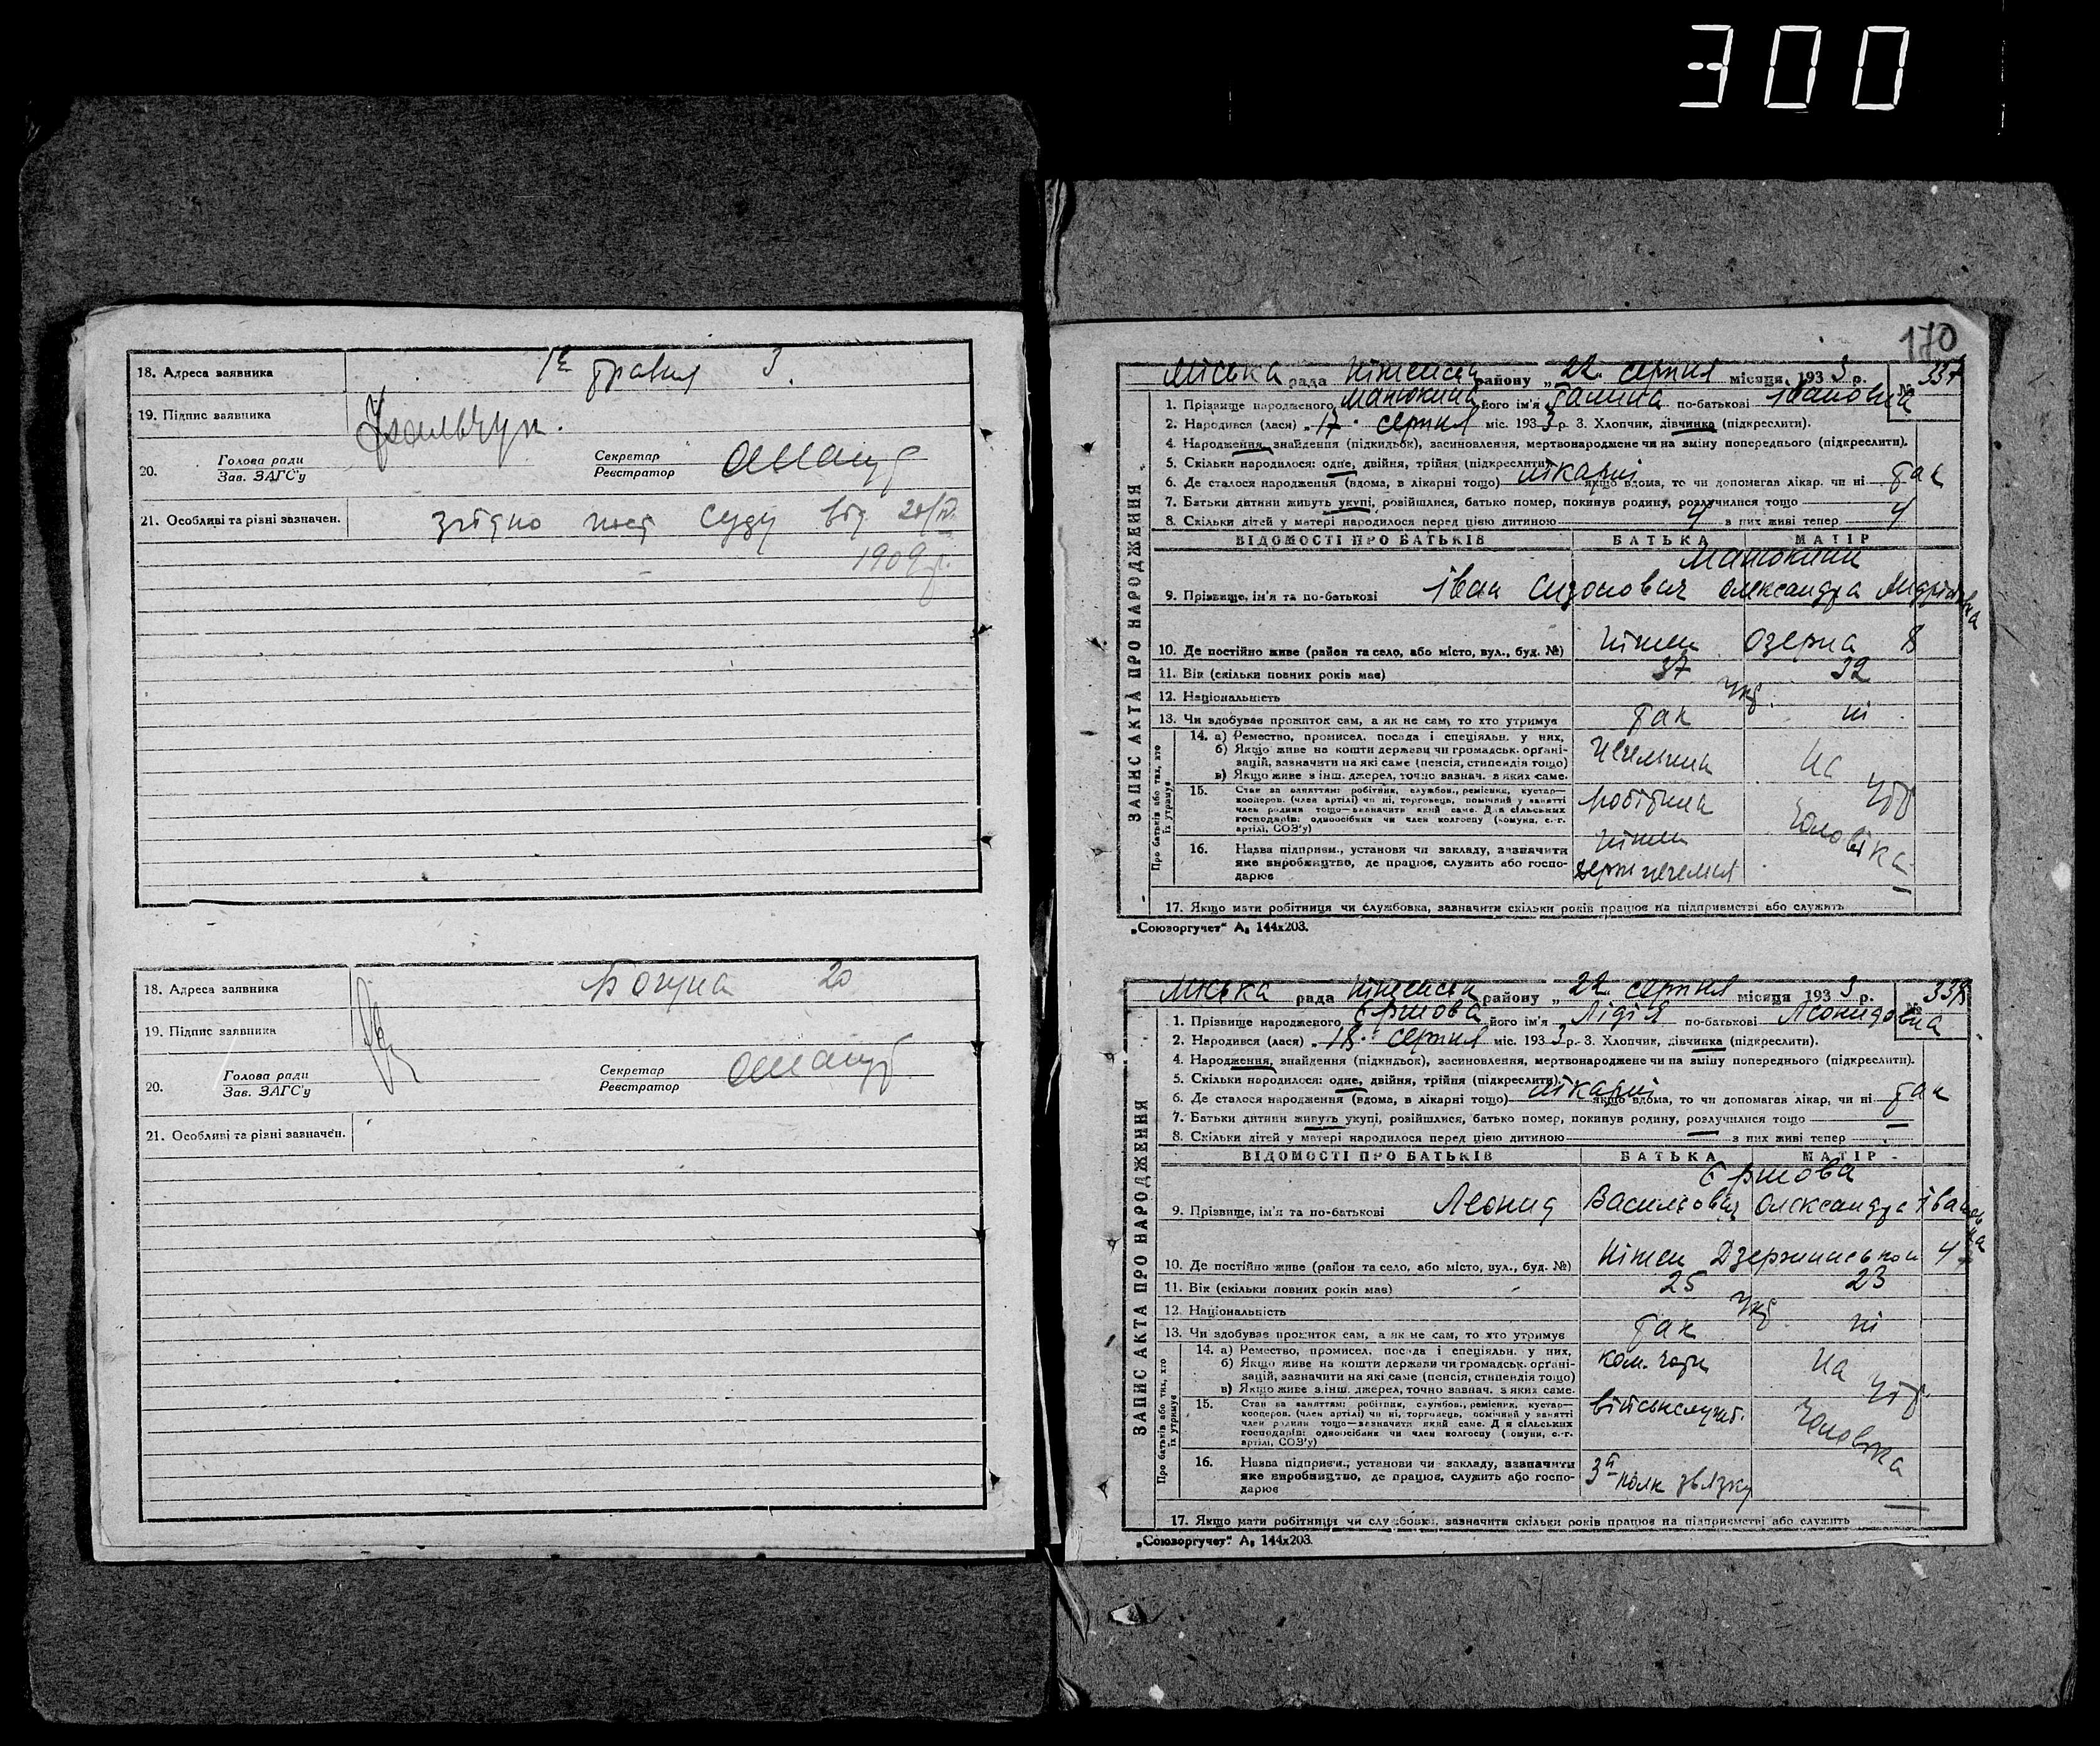 300
18. Адреса заявника 1е травня 3.
19. Підпис заявника
20. Голова ради Зав. ЗАГС'у Секретар Реєстратор
21. Особливі та різні зазначен. згідно пост суду від 20/IV.
1909 р.
18. Адреса заявника Богуна 20
19. Підпис заявника
20. Голова ради Зав. ЗАГС'у Секретар Реєстратор
21. Особливі та різні зазначен.
170
ЗАПИС АКТА ПРО НАРОДЖЕННЯ
Міська рада Ніженська району „ 22. серпня місяця, 193 3 р. № 337
1. Прізвище народженого Манюкина його ім'я Галина по-батькові Івановна
2. Народився (лася) „ 17. серпня міс. 193 3 р. 3. Хлопчик, дівчинка (підкреслити).
4. Народження, знайдення (підкидьок), засиновлення, мертвонароджене чи на зміну попереднього (підкреслити).
5. Скільки народилося: одне, двійня, трійня (підкреслити)
6. Де сталося народження (вдома, в лікарні тощо) лікарні якщо вдома, то чи допомагав лікар. чи ні так
7. Батьки дитини живуть укупі, розійшлися, батько помер, покинув родину, розлучилися тощо
8. Скільки дітей у матері народилося перед цією дитиною 4 з них живі тепер 4
ВІДОМОСТІ ПРО БАТЬКІВ БАТЬКА МАТІР
Манюкини
9. Прізвище, ім'я та по-батькові Іван Сизонович Олександра Андріївна
10. Де постійно живе (район та село, або місто, вул., буд. №) Ніжен Озерна 8
11. Вік (скільки повних років має) 37 32
12. Національність Укр.
13. Чи здобуває прожиток сам, а як не сам, то хто утримує так ні
Про батьків або тих, хто їх утримує
14. а) Ремество, промисел, посада і спеціяльн. у них,
б) Якщо живе на кошти держави чи громадськ. органі-
зацій, зазначити на які саме (пенсія, стипендія тощо)
в) Якщо живе з інш. джерел, точно зазнач. з яких саме.
на ут
15. Стан за заняттям: робітник, службов., ремісник, кустар—
кооперов. (член артілі) чи ні, торговець, помічний у занятті
член родини тощо—зазначити який саме. Для сільських
господарів: одноосібник чи член колгоспу (комуни, с.-г.
артілі, СОЗ'у)
чоловіка
16. Назва підприєм., установи чи закладу, зазначити
яке виробництво, де працює, служить або госпо-
дарює
Ніжен
17. Якщо мати робітниця чи службовка, зазначити скільки років працює на підприємстві або служить
„Союзоргучет" А₅ 144х203.
ЗАПИС АКТА ПРО НАРОДЖЕННЯ
Міська рада Ніженська району „ 22 серпня місяця 193 3 р. № 338
1. Прізвище народженого Єршова його ім'я Лідія по-батькові Леонидовна
2. Народився (лася) „ 18. серпня міс. 193 3 р. 3. Хлопчик, дівчинка (підкреслити).
4. Народження, знайдення (підкидьок), засиновлення, мертвонароджене чи на зміну попереднього (підкреслити).
5. Скільки народилося: одне, двійня, трійня (підкреслити)
6. Де сталося народження (вдома, в лікарні тощо) лікарні якщо вдома, то чи допомагав лікар, чи ні так
7. Батьки дитини живуть укупі, розійшлися, батько помер, покинув родину, розлучилися тощо —
8. Скільки дітей у матері народилося перед цією дитиною — з них живі тепер
ВІДОМОСТІ ПРО БАТЬКІВ БАТЬКА МАТІР
Єршова
9. Прізвище, ім'я та по-батькові Леонид Васильович Олександра Івановна
10. Де постійно живе (район та село, або місто, вул., буд. №) Ніжен Дзержинської 4
11. Вік (скільки повних років має) 25 23
12. Національність Укр.
13. Чи здобуває прожиток сам, а як не сам, то хто утримує так ні
Про батьків або тих, хто їх утримує
14. а) Ремество, промисел, посада і спеціяльн. у них,
б) Якщо живе на кошти держави чи громадськ. органі-
зацій, зазначити на які саме (пенсія, стипендія тощо)
в) Якщо живе з інш. джерел, точно зазнач. з яких саме
на ут.
15. Стан за заняттям: робітник, службов., ремісник, кустар—
кооперов. (член артілі) чи ні, торговець, помічний у занятті
член родини тощо—зазначити який саме. Для сільських
господарів: одноосібник чи член колгоспу (комуни, с.-г.
артілі, СОЗ'у)
військслужб. чоловіка
16. Назва підприєм., установи чи закладу, зазначити
яке виробництво, де працює, служить або госпо-
дарює
3й полк звязку
17. Якщо мати робітниця чи службовка, зазначити скільки років працює на підприємстві або служить —
„Союзоргучет" А₅ 144х203.